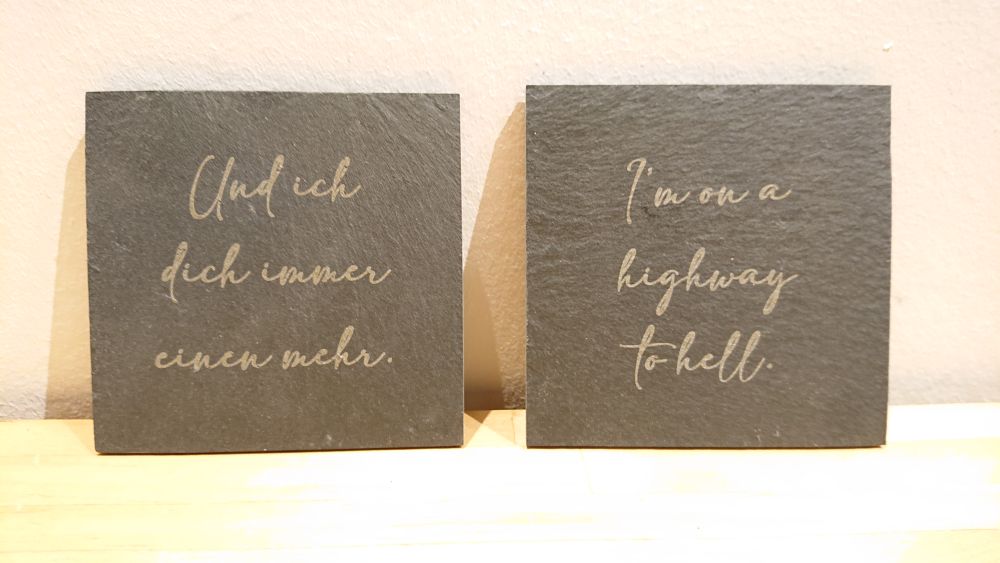 Und ich
dich immer
einen mehr.
I'm on a
highway
to hell.